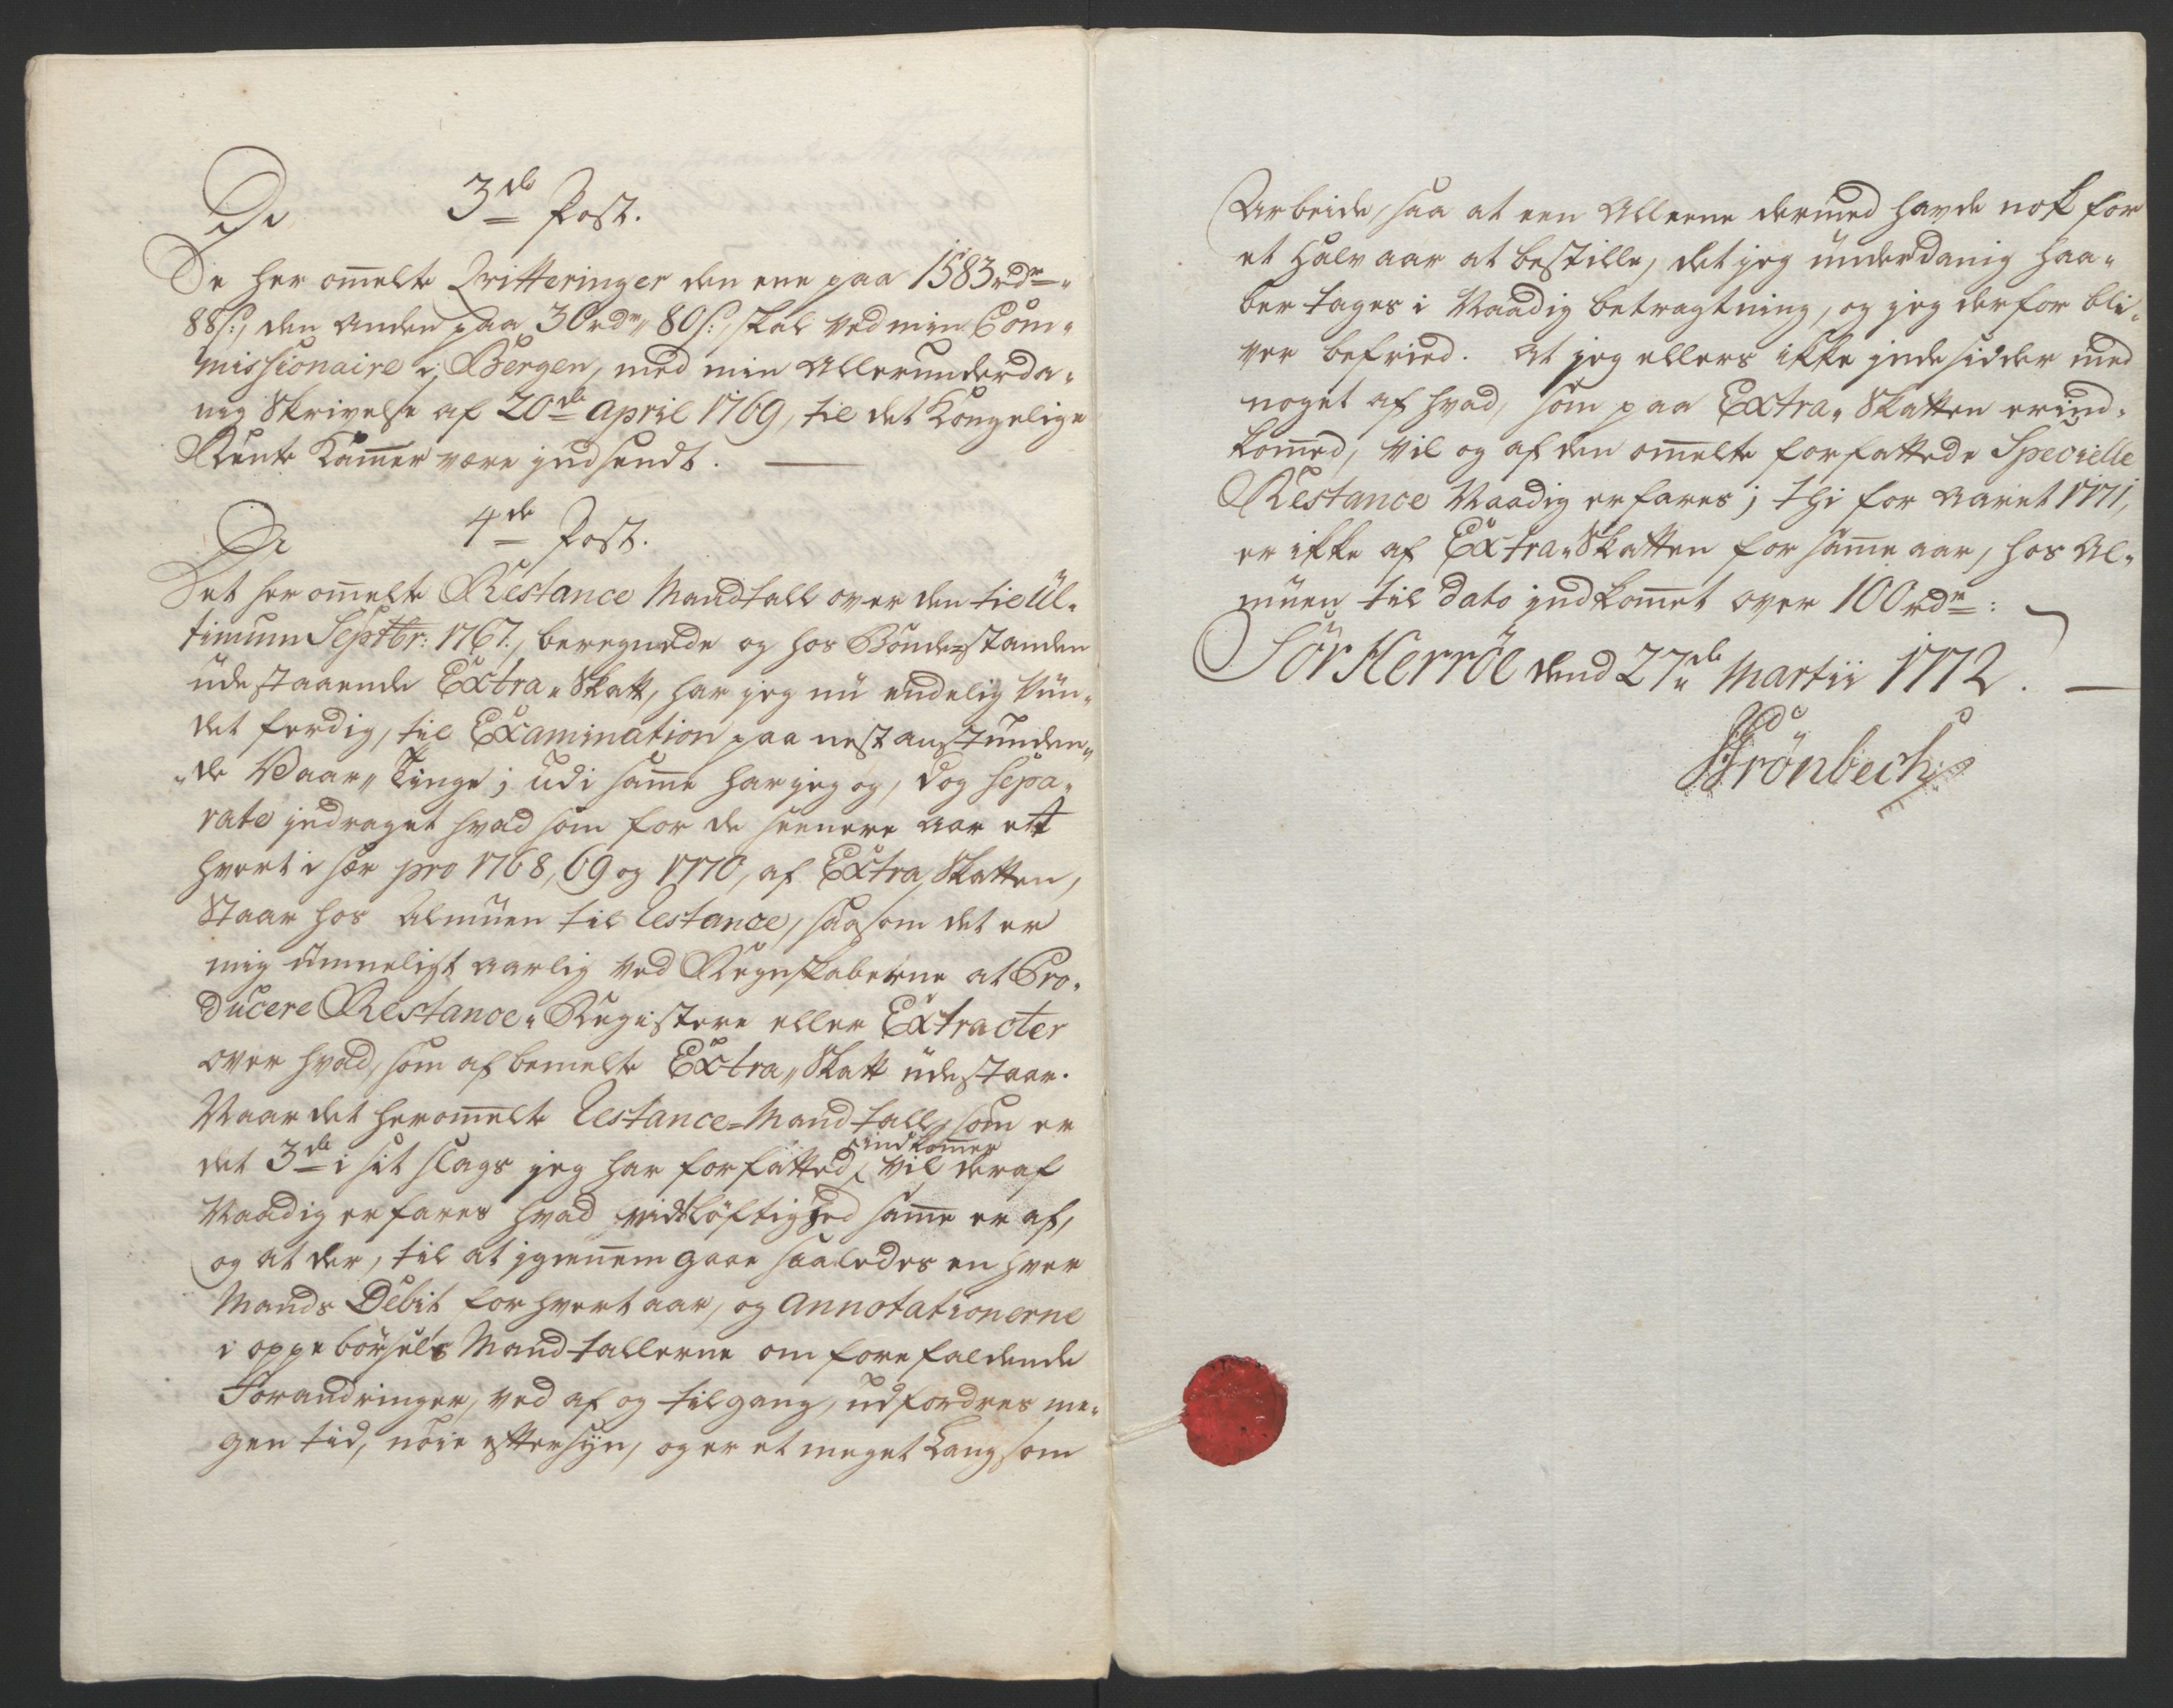 3de Post.
De her om̅elte Qvitteringer den ene paa 1583rdr„
88s:, den anden paa 30rdr„ 80s:, skal ved min Com„
missionaire i Bergen, med min allerunderda„
nig Skrivelse af 20de April 1769, til det Kongelige
Rente Kam̅er være indsendt. —
4de Post.
Det her om̅elte Restance Mandtall over den til Ul„
timum Septbr: 1767., beregnede og hos Bonde-standen
udestaaende Extra„ Skatt, har jeg nu endelig vun„
det ferdig, til Examination paa nest anstunden„
„de Vaar„ Tinge; udi sam̅e har jeg og, dog sepa„
rate indraget hvad som for de seenere aar ett
hvert i sær pro 1768, 69 og 1770, af Extra Skatten,
staar hos Almuen til Restance, saasom det er
mig ummeligt aarlig ved Regnskaberne at Pro„
ducere Restance„ Registere eller Extracter
over hvad, som af bemelte Extra„ Skatt udestaar.
Naar det herom̅elte Restance-Mandtall, som er
det 3de i sit slags jeg har forfatted, indkom̅er vil deraf
Naadig erfares hvad vidtløftighed sam̅e er af,
og at der, til at igien̅em gaae saaledes en hver
Mands Debit for hvert aar, og Annotationerne
i oppebørsels Mandtallerne om forefaldende
Forandringer, ved af og tilgang, udfordres me„
gen tid, nøie eftersyn, og er et meget Langsom
Arbeide, saa at een alleene dermed havde nok for
et halv aar at bestille, det jeg underdanig haa„
ber tages i Naadig betragtning, og jeg derfor bli„
ver befried. At jeg ellers ikke indesidder med
noget af hvad, som paa Extra„ Skatten er ind„
kom̅ed, vil og af den om̅elte forfattede Specielle
Restance Naadig erfares; thi for aaret 1771,
er ikke af Extra„ Skatten for sam̅e aar, hos Al„
muen til dato indkom̅et over 100rdr:
Sör Herröe dend 27de Martii 1772. —
Strönbech